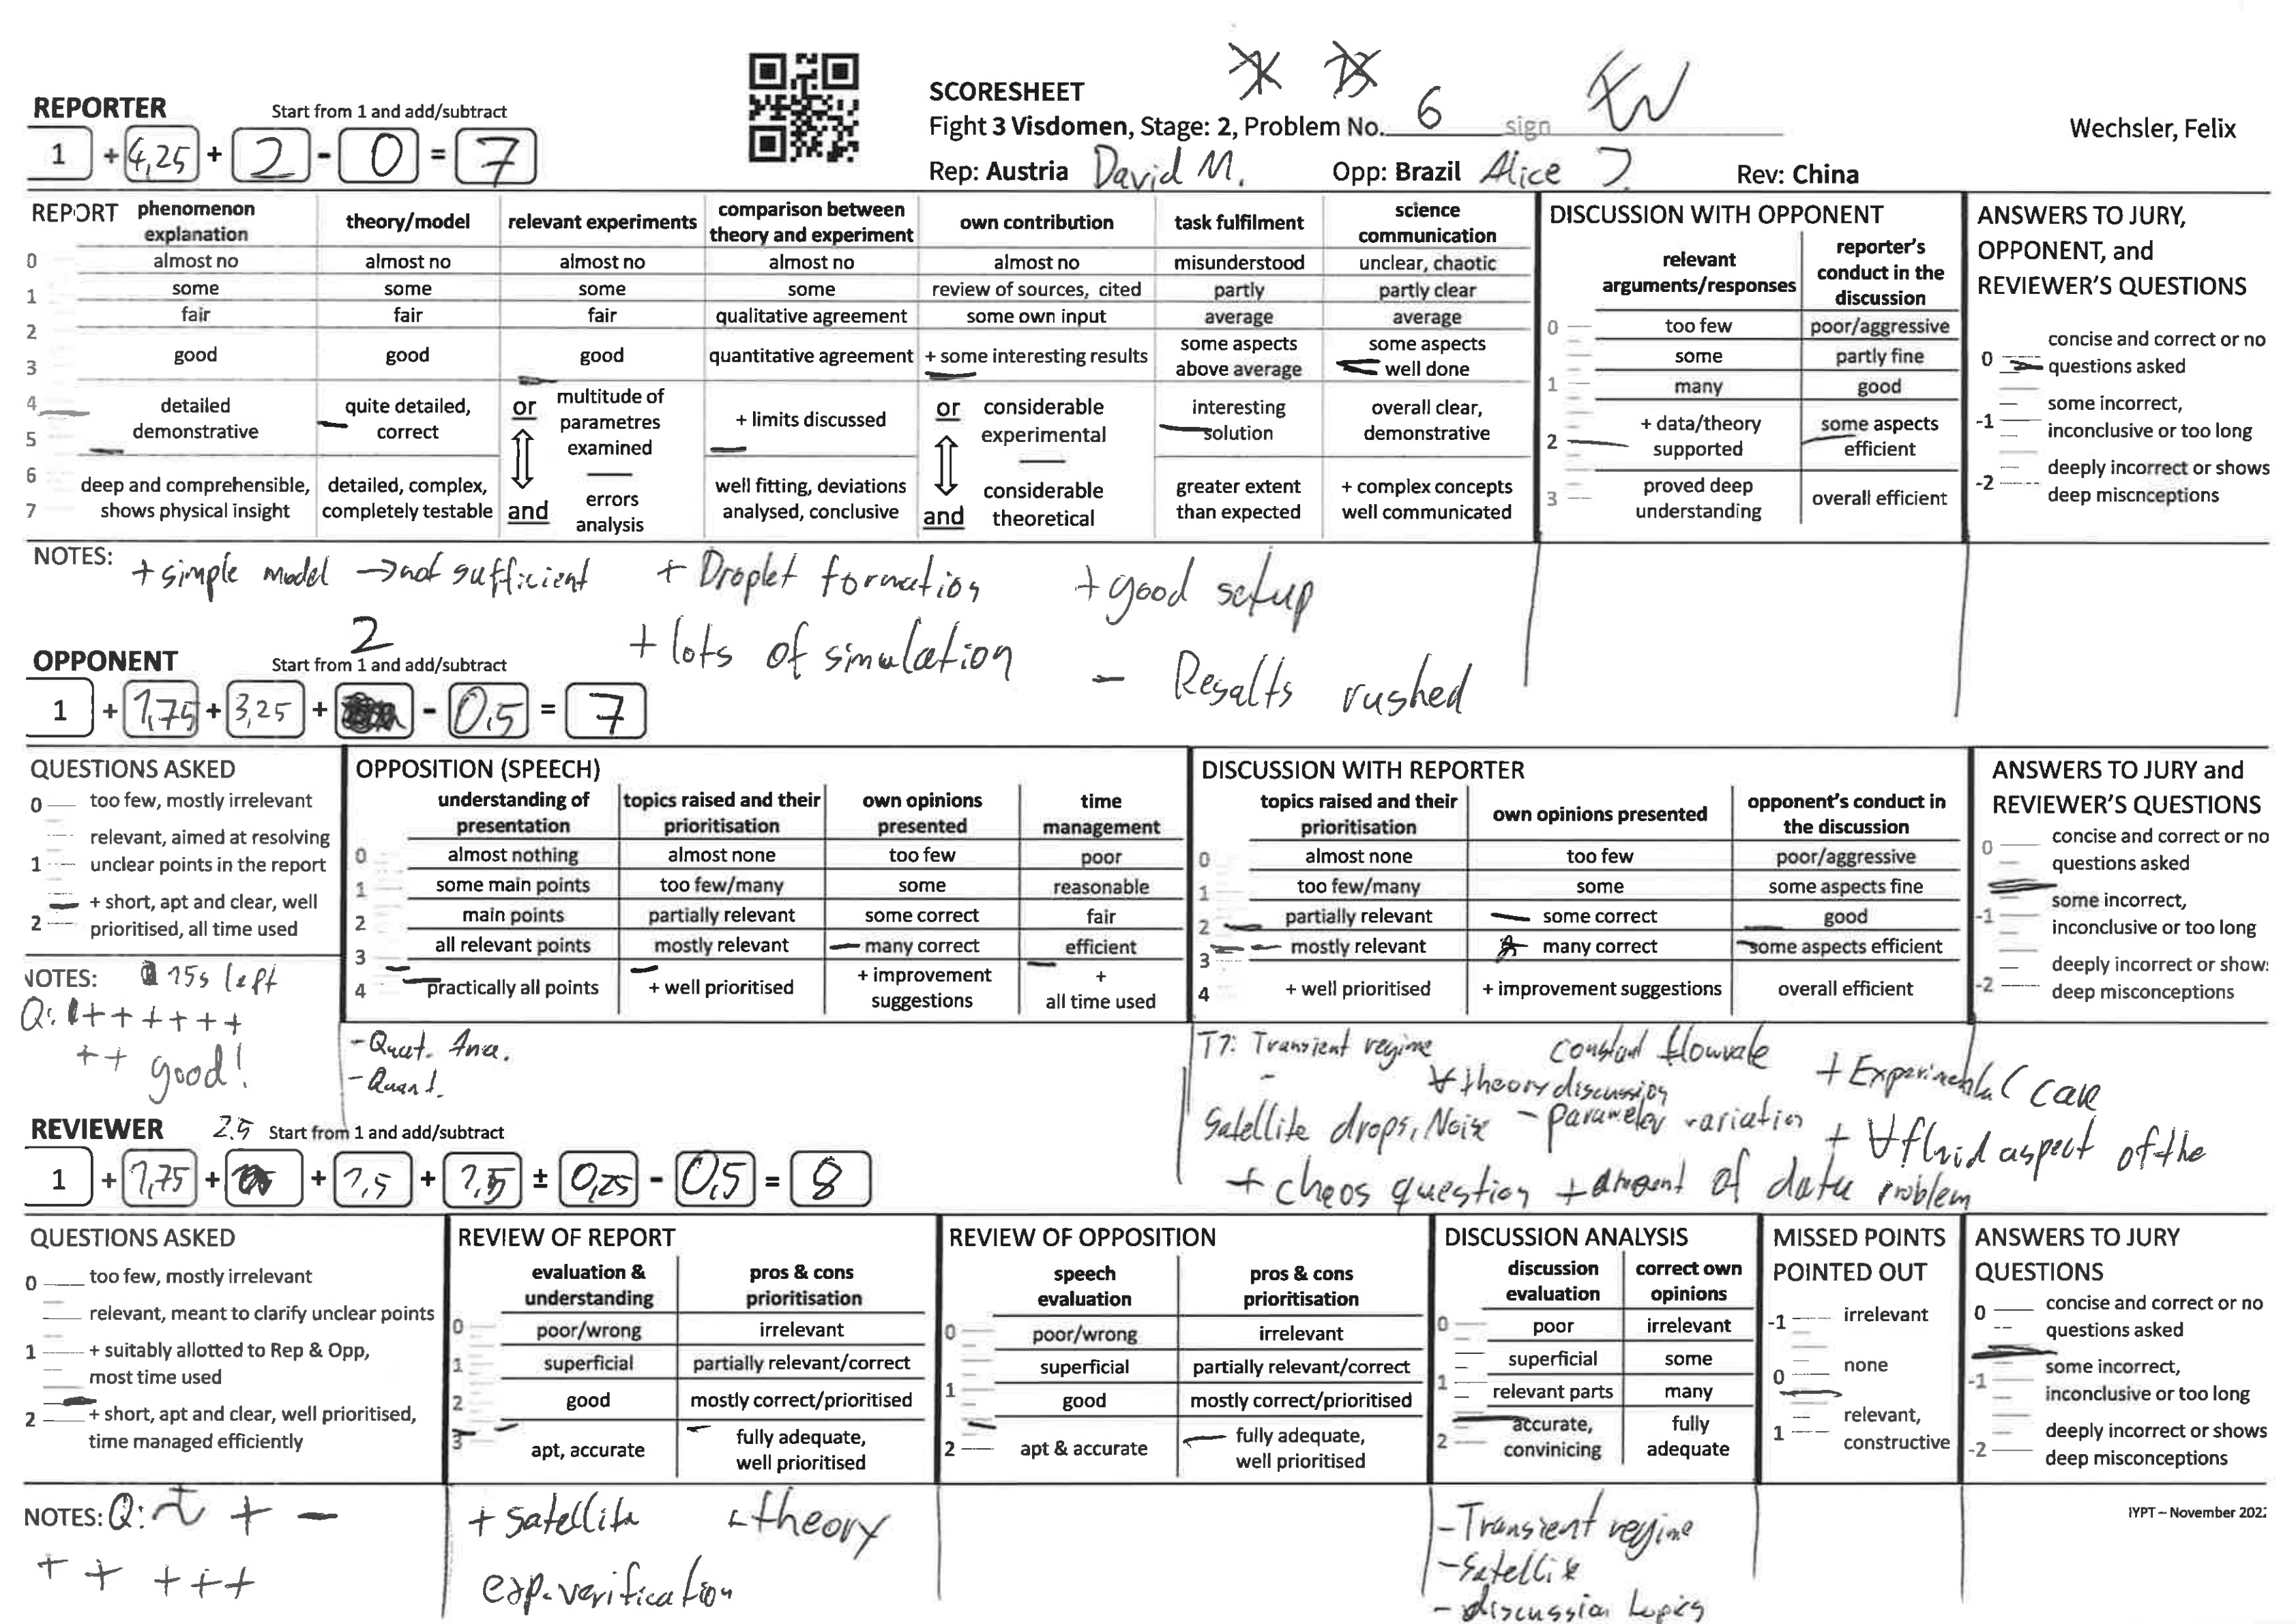 SCORESHEET
REPORTER Start from 1 and add/subtract
Fight 3 Visdomen, Stage: 2, Problem No. 6 sign
Wechsler, Felix
1 + 4,25 + 2 - 0 = 7
Rep: Austria David M. Opp: Brazil Alice J. Rev: China
REPORT
phenomenon explanation
theory/model
relevant experiments
comparison between theory and experiment
own contribution
task fulfilment
science communication
0 almost no almost no almost no almost no almost no misunderstood unclear, chaotic
1 some some some some review of sources, cited partly partly clear
2 fair fair fair qualitative agreement some own input average average
3 good good good quantitative agreement + some interesting results some aspects above average some aspects well done
4
5
detailed demonstrative
quite detailed, correct
or multitude of parametres examined
+ limits discussed
or considerable experimental
interesting solution
overall clear, demonstrative
6
7
deep and comprehensible, shows physical insight
detailed, complex, completely testable
and errors analysis
well fitting, deviations analysed, conclusive
and considerable theoretical
greater extent than expected
+ complex concepts well communicated
DISCUSSION WITH OPPONENT
relevant arguments/responses
reporter's conduct in the discussion
0 too few poor/aggressive
some partly fine
1 many good
2 + data/theory supported some aspects efficient
3 proved deep understanding overall efficient
ANSWERS TO JURY,
OPPONENT, and
REVIEWER'S QUESTIONS
0 concise and correct or no
questions asked
-1 some incorrect,
inconclusive or too long
-2 deeply incorrect or shows
deep miscnceptions
NOTES: + simple model → not sufficient + Droplet formation + good setup
+ lots of simulation - Results rushed
2
OPPONENT Start from 1 and add/subtract
1 + 1,75 + 3,25 + - 0,5 = 7
QUESTIONS ASKED
0 too few, mostly irrelevant
relevant, aimed at resolving
1 unclear points in the report
+ short, apt and clear, well
2 prioritised, all time used
NOTES: 15s left
Q: + + + + + +
+ + good!
OPPOSITION (SPEECH)
understanding of presentation
topics raised and their prioritisation
own opinions presented
time management
0 almost nothing almost none too few poor
1 some main points too few/many some reasonable
2 main points partially relevant some correct fair
3 all relevant points mostly relevant many correct efficient
4 practically all points + well prioritised + improvement suggestions + all time used
- Quant.
DISCUSSION WITH REPORTER
topics raised and their prioritisation
own opinions presented
opponent's conduct in the discussion
0 almost none too few poor/aggressive
1 too few/many some some aspects fine
2 partially relevant some correct good
3 mostly relevant many correct some aspects efficient
4 + well prioritised + improvement suggestions overall efficient
Transient regime constant flowrate + Experimental care
∀ theory discussion
Satellite drops, Noise - parameter variation + ∀ fluid aspect of the
+ chaos question + amount of data problem
ANSWERS TO JURY and
REVIEWER'S QUESTIONS
0 concise and correct or no
questions asked
some incorrect,
-1 inconclusive or too long
deeply incorrect or show:
-2 deep misconceptions
REVIEWER 2.5 Start from 1 and add/subtract
1 + 1,75 + + 1,5 + 1,5 ± 0,25 - 0,5 = 8
QUESTIONS ASKED
0 too few, mostly irrelevant
relevant, meant to clarify unclear points
1 + suitably allotted to Rep & Opp,
most time used
2 + short, apt and clear, well prioritised,
time managed efficiently
NOTES: Q: ± + -
+ + + + +
REVIEW OF REPORT
evaluation & understanding
pros & cons prioritisation
0 poor/wrong irrelevant
1 superficial partially relevant/correct
2 good mostly correct/prioritised
3 apt, accurate fully adequate, well prioritised
+ satellite theory
exp. verification
REVIEW OF OPPOSITION
speech evaluation
pros & cons prioritisation
0 poor/wrong irrelevant
superficial partially relevant/correct
1 good mostly correct/prioritised
2 apt & accurate fully adequate, well prioritised
DISCUSSION ANALYSIS
discussion evaluation
correct own opinions
0 poor irrelevant
superficial some
1 relevant parts many
2 accurate, convinicing fully adequate
- Transient regime
- Satellite
- discussion topics
MISSED POINTS
POINTED OUT
-1 irrelevant
0 none
1 relevant,
constructive
ANSWERS TO JURY
QUESTIONS
0 concise and correct or no
questions asked
-1 some incorrect,
inconclusive or too long
-2 deeply incorrect or shows
deep misconceptions
IYPT – November 202